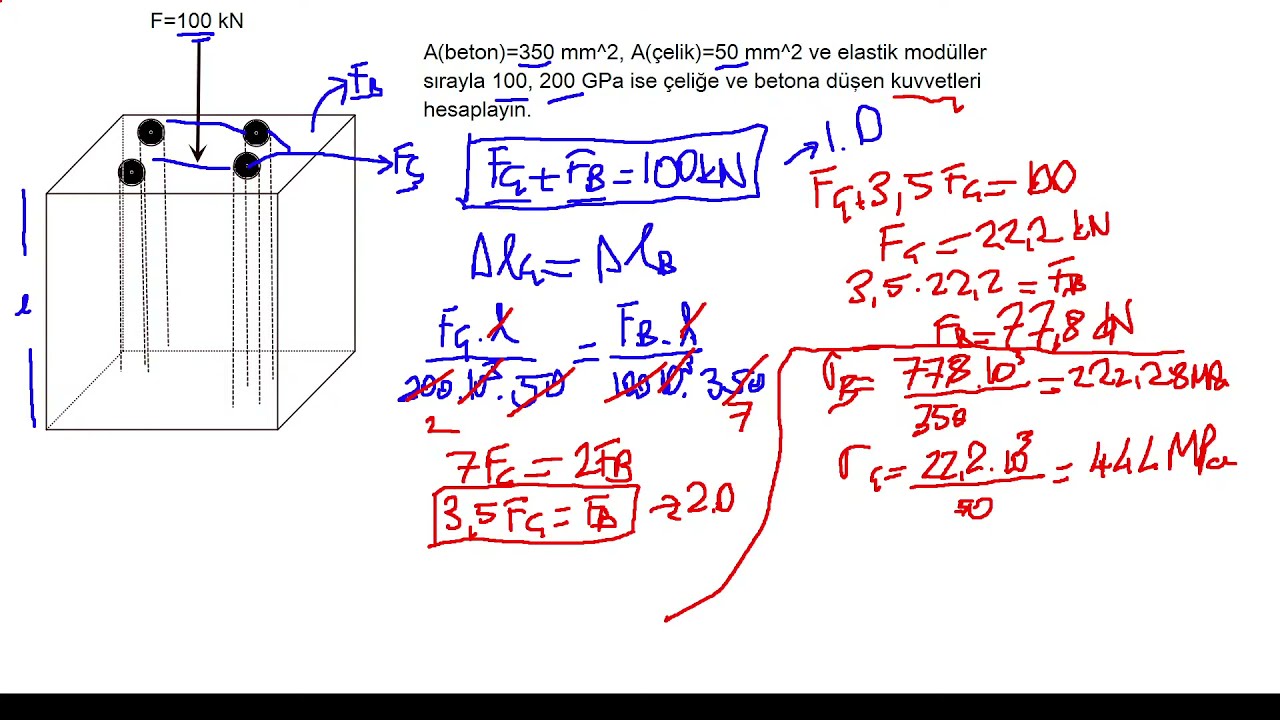 F=100 kN
A(beton)=350 mm^2, A(çelik)=50 mm^2 ve elastik modüller
sırayla 100, 200 GPa ise çeliğe ve betona düşen kuvvetleri
hesaplayın.
F_B
F_Ç
l
F_Ç + F_B = 100kN
→ 1.D
Δl_Ç = Δl_B
F_Ç . l / 200 . 10^3 . 50 = F_B . l / 100 10^3 . 350
2
7
7F_Ç = 2F_B
3,5F_Ç = F_B → 2.D
F_Ç + 3,5F_Ç = 100
F_Ç = 22,2 kN
3,5 . 22,2 = F_B
F_B = 77,8 kN
σ_B = 778 . 10^3 / 350 = 222,28 MPa
σ_Ç = 22,2 . 10^3 / 50 = 444 MPa